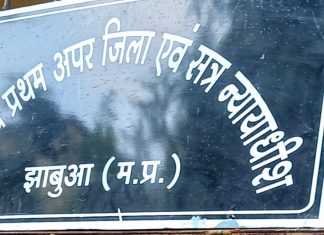 प्रथम अपर जिला एवं सत्र न्यायाधीश
झाबुआ (म.प्र.)